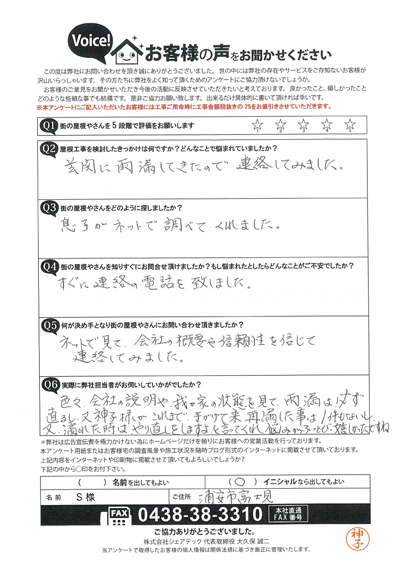 Voice!
お客様の声をお聞かせください
この度は弊社にお問い合わせを頂き誠にありがとうございました。世の中には弊社の存在やサービスをご存知ないお客様が
沢山いらっしゃいます。その方たちに弊社をよく知って頂くためのアンケートにご協力頂けないでしょうか。
お客様のご意見をお聞かせいただき今後の活動に反映させていただきたいと考えております。良かったこと、嬉しかったこと
どのような些細な事でも結構です。是非ご協力お願い致します。出来るだけ具体的に書いて頂ければ幸いです。
※本アンケートにご記入いただいたお客様には工事ご用命時に工事金額税抜きの2%をお値引きさせていただきます。
Q1 街の屋根やさんを5段階で評価をお願いします ☆ ☆ ☆ ☆ ☆
Q2 屋根工事を検討したきっかけは何ですか?どんなことで悩まれていましたか?
玄関に雨漏してきたので連絡してみました。
Q3 街の屋根やさんをどのように探しましたか?
息子がネットで調べてくれました。
Q4 街の屋根やさんを知りすぐにお問合せ頂けましたか?もし悩まれたとしたらどんなことがご不安でしたか?
すぐに連絡の電話を致しました。
Q5 何が決め手となり街の屋根やさんにお問い合わせ頂けましたか?
ネットで見て、会社の概要や信頼性を信じて
連絡してみました。
Q6 実際に弊社担当者がお伺いしていかがでしたか?
色々会社の説明や、我が家の状態を見て、雨漏は必ず
直るし、又神子様がこれまで手がけて来再漏した事は1件もないし
又、漏れた時はやり直しをしますよと言ってくれ
嬉しかったですね
※弊社は広告宣伝費を極力かけない為にホームページだけを頼りにお客様への営業活動を行っております。
本アンケート用紙またはお客様宅の調査風景や施工状況を随時ブログ形式のインターネットに掲載させて頂いております。
上記内容をインターネットや印刷物に掲載させて頂いてもよろしいでしょうか?
下記の中から○印をお付け下さい。
( ) 名前を出してもよい ( ○ ) イニシャルなら出してもよい
名前 S様 ご住所 浦安市富士見
FAX 0438-38-3310 本社直通 FAX番号
ご協力ありがとうございました。
株式会社シェアテック 代表取締役 大久保 誠二
当アンケートで取得したお客様の個人情報は関係法規に基づき厳正に管理いたします。
神子